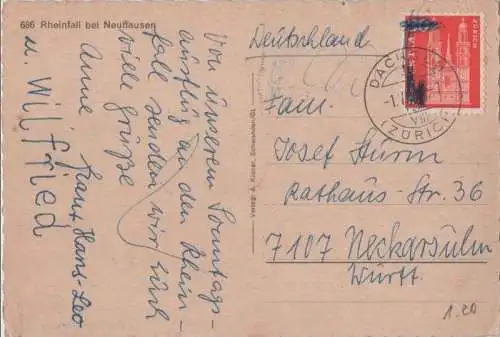 666 Rheinfall bei Neuhausen
Von unserem Sonntags-
ausflug an den Rhein-
fall senden wir Euch
viele Grüße
Anne Hans-Leo
u. Wilfried
Deutschland
Fam.
Josef Sturm
Rathaus-Str. 36
7107 Neckarsulm
Württ.
Verlag: A. Kürner,
ZÜRICH
DACH
VIII
(ZÜRICH)
1.20